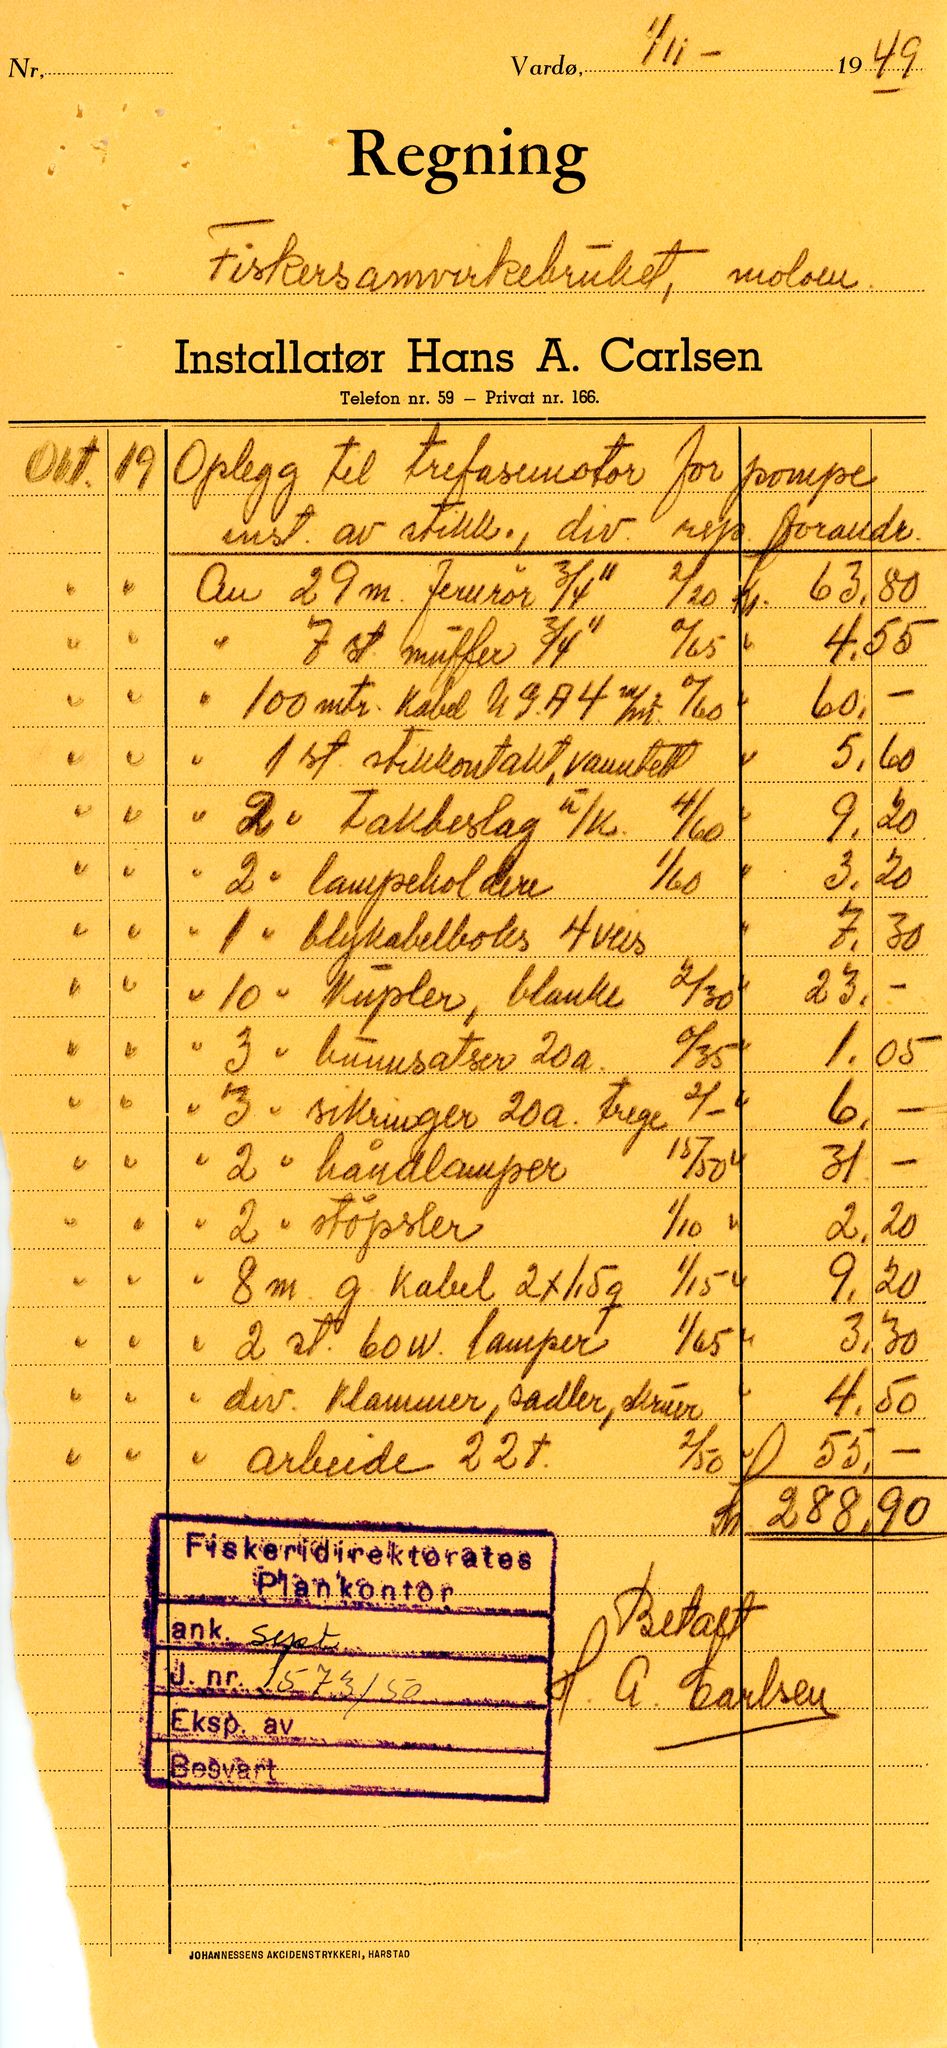 Nr. Vardø, 1/11 - 1949
Regning
Fiskersamvirkebruket, moloen.
Installatør Hans A. Carlsen
Telefon nr. 59 — Privat nr. 166.
Okt. 19 Oplegg til trefasemotor for pompe
inst. av stikk., div. rep. forandr.
" " An 29 m. Jernrör 3/4" 2/20 kr. 63,80
" " " 7 st. muffer 3/4" 0/65 " 4,55
" " " 100 mtr. Kabel 4 m/m² 0/60 " 60,-
" " " 1 st. stikkontakt, vanntett " 5,60
" " " 2 " takbeslag u/k. 4/60 " 9,20
" " " 2 " lampeholdere 1/60 " 3,20
" " " 1 " blykabelboks 4 veis " 7,30
" " " 10 " Kupler, blanke 2/30 " 23,-
" " " 3 " bunnsatser 20a. 0/35 " 1,05
" " " 3 " sikringer 20a. trege 2/- " 6,-
" " " 2 " håndlamper 15/50 " 31,-
" " " 2 " stöpsler 1/10 " 2,20
" " " 8 m. g. Kabel 2x1,5q 1/15 " 9,20
" " " 2 st. 60 w. lamper 1/65 " 3,30
" " " div. Klammer, sadler, skruer " 4,50
" " " arbeide 22 t. 2/50 " 55,-
Kr. 288,90
Fiskeridirektoratets
Plankontor
ank. sept
J. nr. 1573/50
Eksp. av
Besvart
Betalt
H. A. Carlsen
JOHANNESSENS AKCIDENSTRYKKERI, HARSTAD